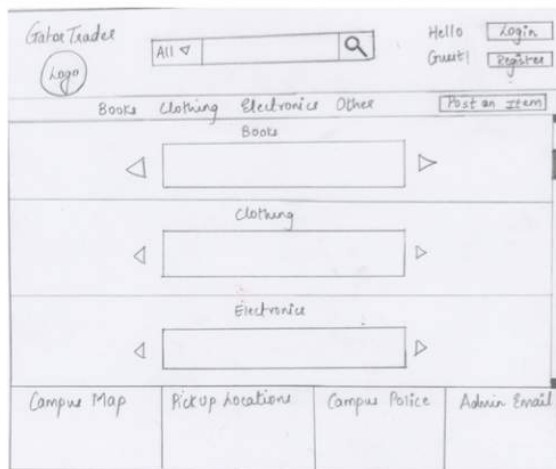 Gator Trader
Logo
All
Hello Guest!
Login
Register
Books Clothing Electronics Other
Post an Item
Books
Clothing
Electronics
Campus Map Pickup Locations Campus Police Admin Email